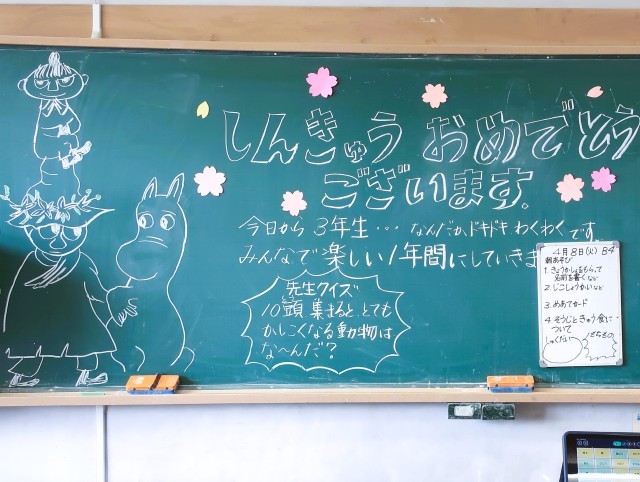 しんきゅう おめでとう
ございます。
今日から 3年生… なんだか、ドキドキ わくわく です
みんなで 楽しい1年間にしていきま
先生クイズ
10頭 集まると、とても
かしこくなる動物は
な〜んだ？
4月8日(火) B4
朝あそび
1. きょうかしょをもらって
名前を書く など
2. じこしょうかい など
3. めあてカード
4. そうじときゅう食に
ついて
しゅくだい
もちもの